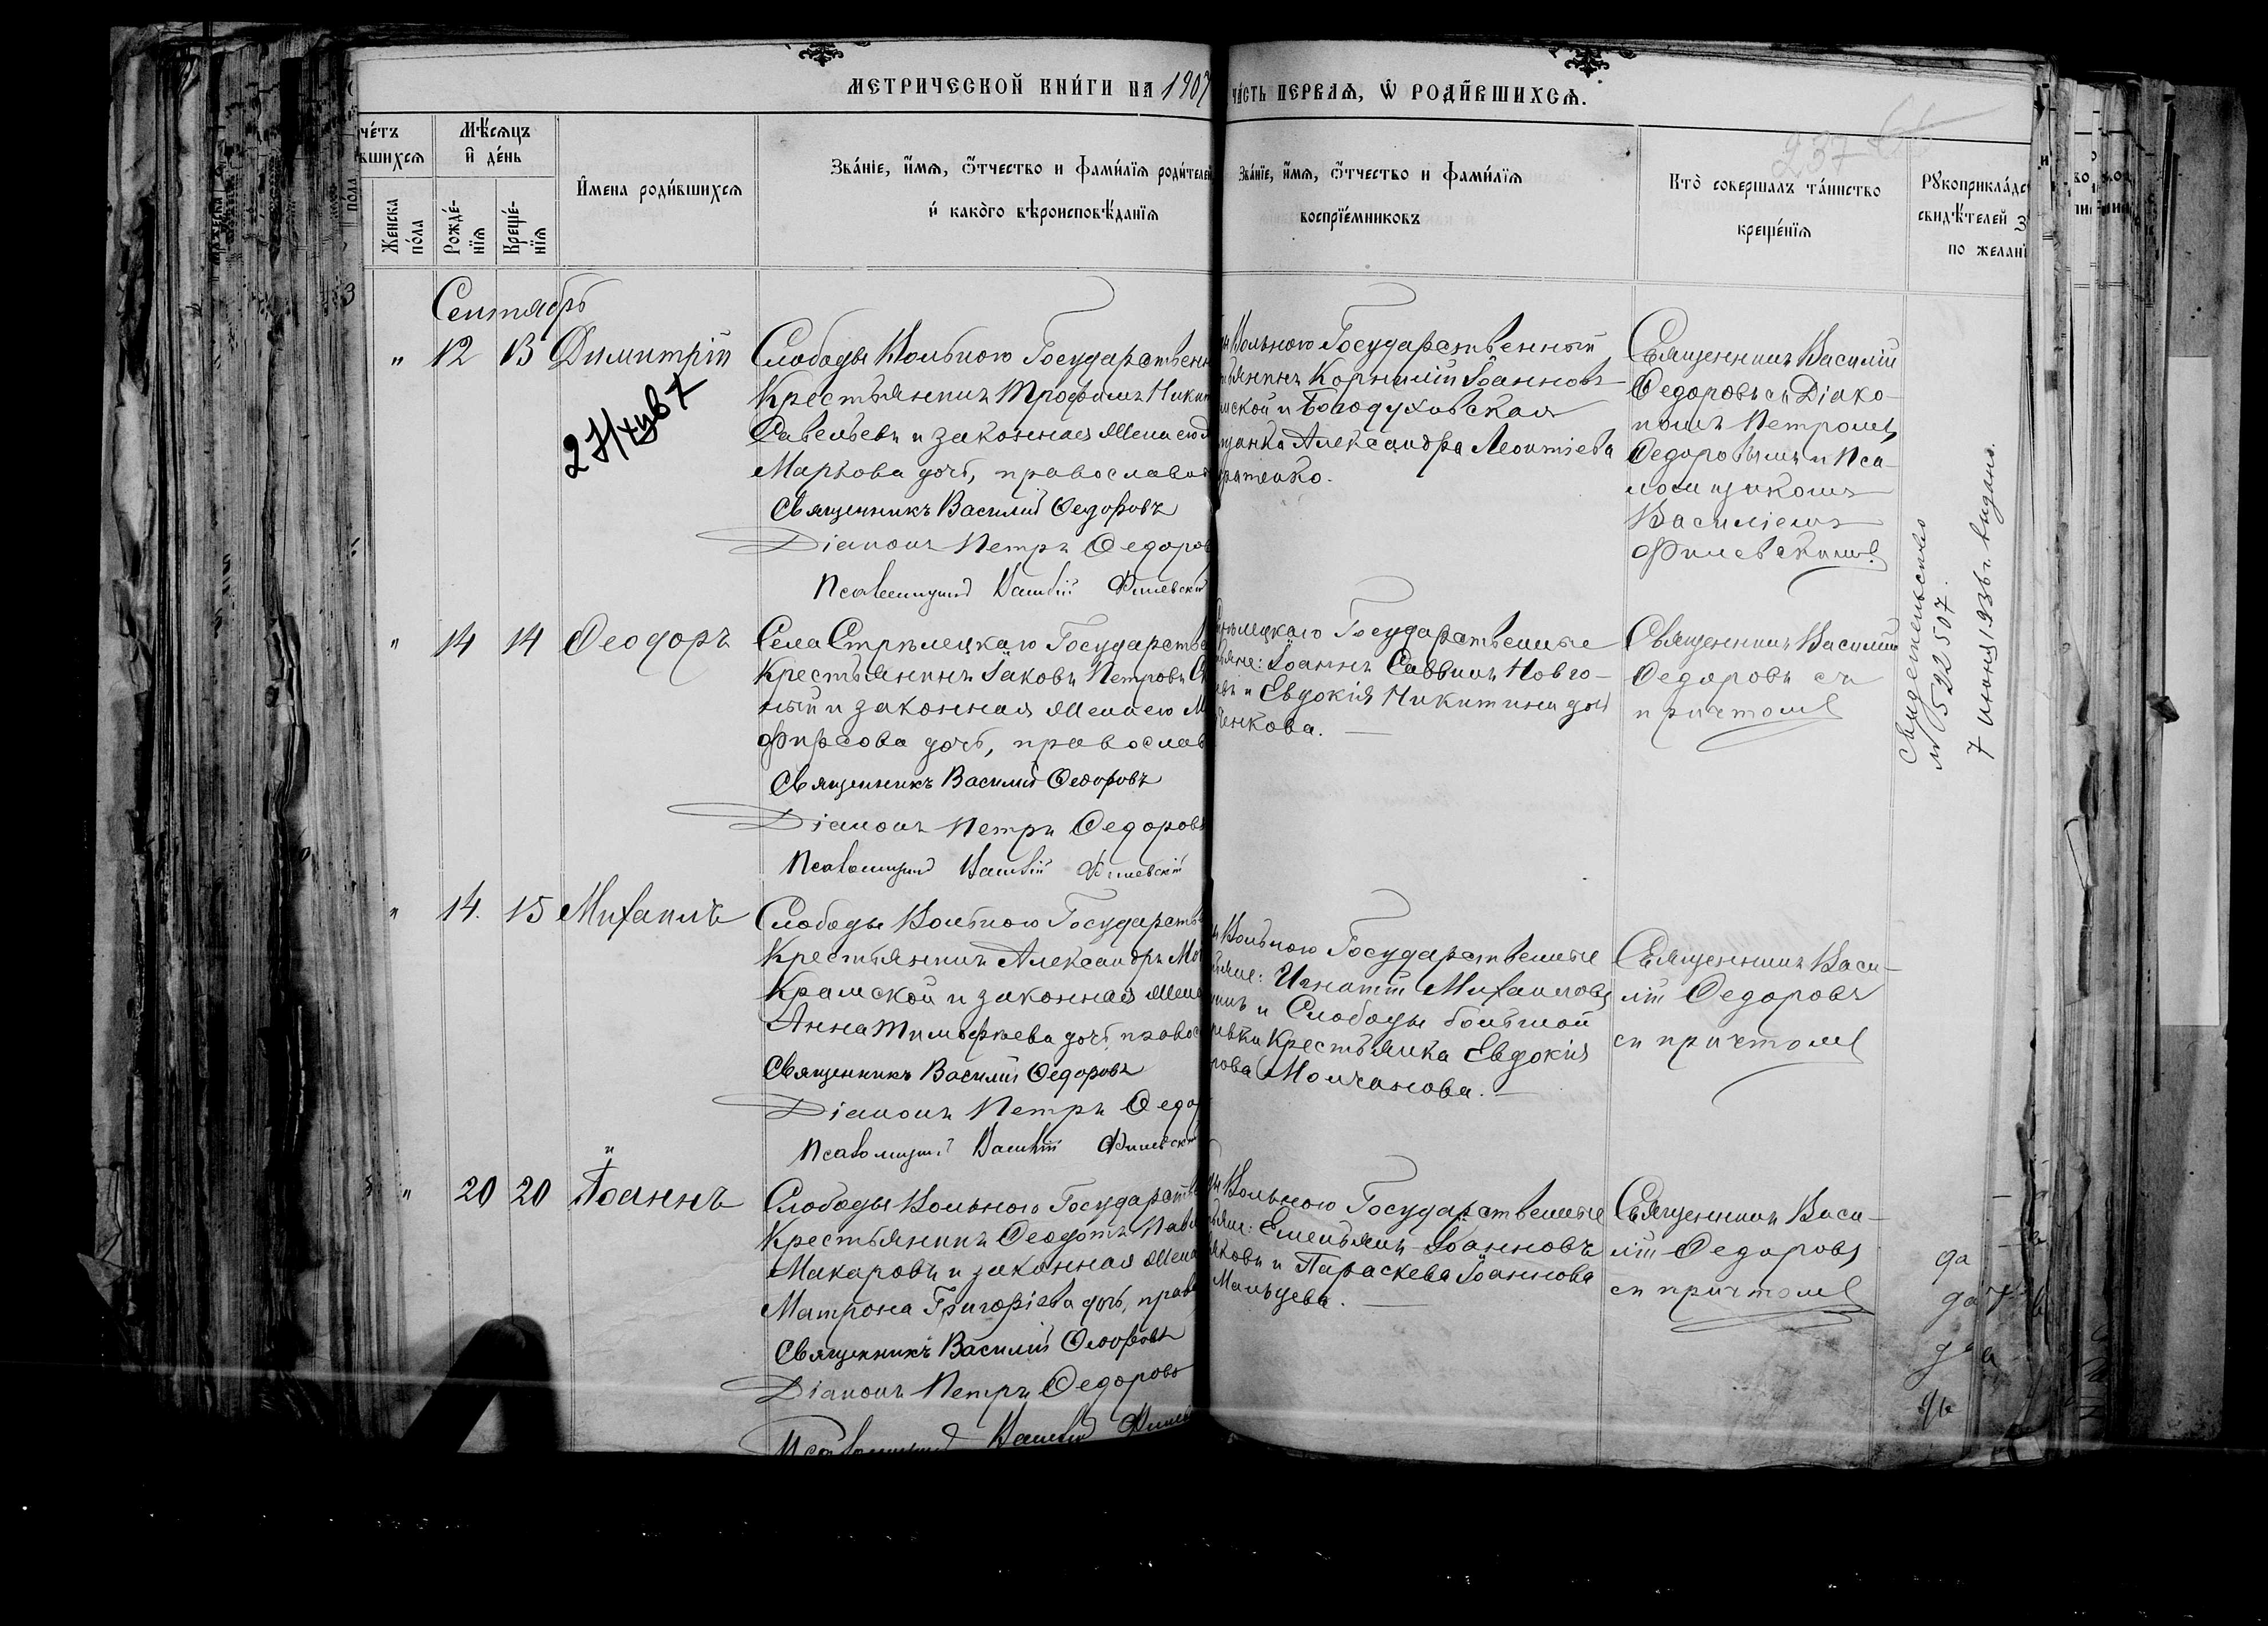 МЕТРИЧЕСКОЙ КНИГИ НА 1907
ЧАСТЬ ПЕРВАЯ, Ѡ РОДИВШИХСЯ.
237
Мѣсяцъ и день
Женска пола
Рождения
Крещения
Имена родившихся
Званіе, имя, ѿтчество и фамилїя родителей
и какого вѣроисповѣданїя
Званіе, имя, ѿтчество и фамилїя
воспрїемниковъ
Кто совершалъ таинство
крещенїя
свидѣтелей
по желанї
Сентябрь
" 12 13 Димитрій
Слободы Вольного Государственн
Крестьянинъ Трофимъ Никит
Савельевъ и законная жена его
Маркова дочь, православн
Священникъ Василий Ѳедоровъ
Діаконъ Петръ Ѳедоров
Псаломщикъ Василій Филевскій
Вольного Государственный
Корнилій Іоанновъ
ской и Богодуховская
Александра Леонтіева
Священникъ Василій
Ѳедоровъ съ Діако-
номъ Петромъ
Ѳедоровымъ и Пса-
ломщикомъ
Василіемъ
Филевскимъ.
" 14 14 Ѳеодоръ
Села Стрѣлецкаго Государств
Крестьянинъ Іаковъ Петровъ
ный и законная жена его М
Фирсова дочь, православ
Священникъ Василий Ѳедоровъ
Діаконъ Петръ Ѳедоровъ
Псаломщикъ Василій Филевскій
Государственные
Іоаннъ Саввинъ Новго-
въ и Евдокія Никитина дочь
енкова.
Священникъ Василій
Ѳедоровъ съ
причтомъ
Свидетельство
№ 522507.
7 июня 1936 г. выдано.
" 14. 15 Михаилъ
Слободы Вольного Государств
Крестьянинъ Александръ
Крамской и законная жена
Анна Тимофѣева дочь, правос
Священникъ Василий Ѳедоровъ
Діаконъ Петръ Ѳедо
Псаломщикъ Василій Филевскі
Вольного Государственные
Игнатій Михаиловъ
и Слободы большой
Крестьянка Евдокія
рова Молчанова.
Священникъ Васи-
лій Ѳедоровъ
съ причтомъ
" 20 20 Іоаннъ
Слободы Вольного Государстве
Крестьянинъ Ѳеодотъ Павл
Макаровъ и законная жена
Матрона Григоріева дочь, право
Священникъ Василий Ѳедоровъ
Діаконъ Петръ Ѳедоровъ
Псаломщикъ Василій Филев
Вольного Государственные
Емельянъ Іоанновъ
яковъ и Параскева Іоаннова
Мальцева.
Священникъ Васи-
лій Ѳедоровъ
съ причтомъ